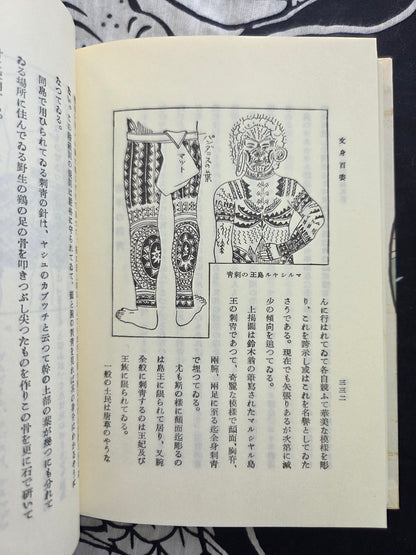 文身百姿
三三二
んに行はれてゐて各自競ふて華美な模様を彫
り、これを誇示し或はこれを名譽としてゐた
さうである。現在でも矢張りあるが次第に減
少の傾向を追つてゐる。
上揭圖は鈴木翁の筆寫されたマルシヤル島
王の刺青であつて、奇麗な模様で顏面、胸背、
兩腕、兩足に至る迄全身刺青
で埋つてゐる。
尤も斯の様に顏面迄彫るの
は島王に限られて居り、又腕
全般に刺青するのは王妃及び
王族に限られてゐる。
一般の土民は唐草のやうな
マルシヤル島王の刺青
の葉
マット
なつてゐる。
同島で用ひられてゐる刺青の針は、ヤシユのカブツチと云つて幹の上部の葉が幾つにも分れて
ゐる場所に住んでゐる野生の鷄の足の骨を叩きつぶし尖つたものを作りこの骨を更に石で硏いて